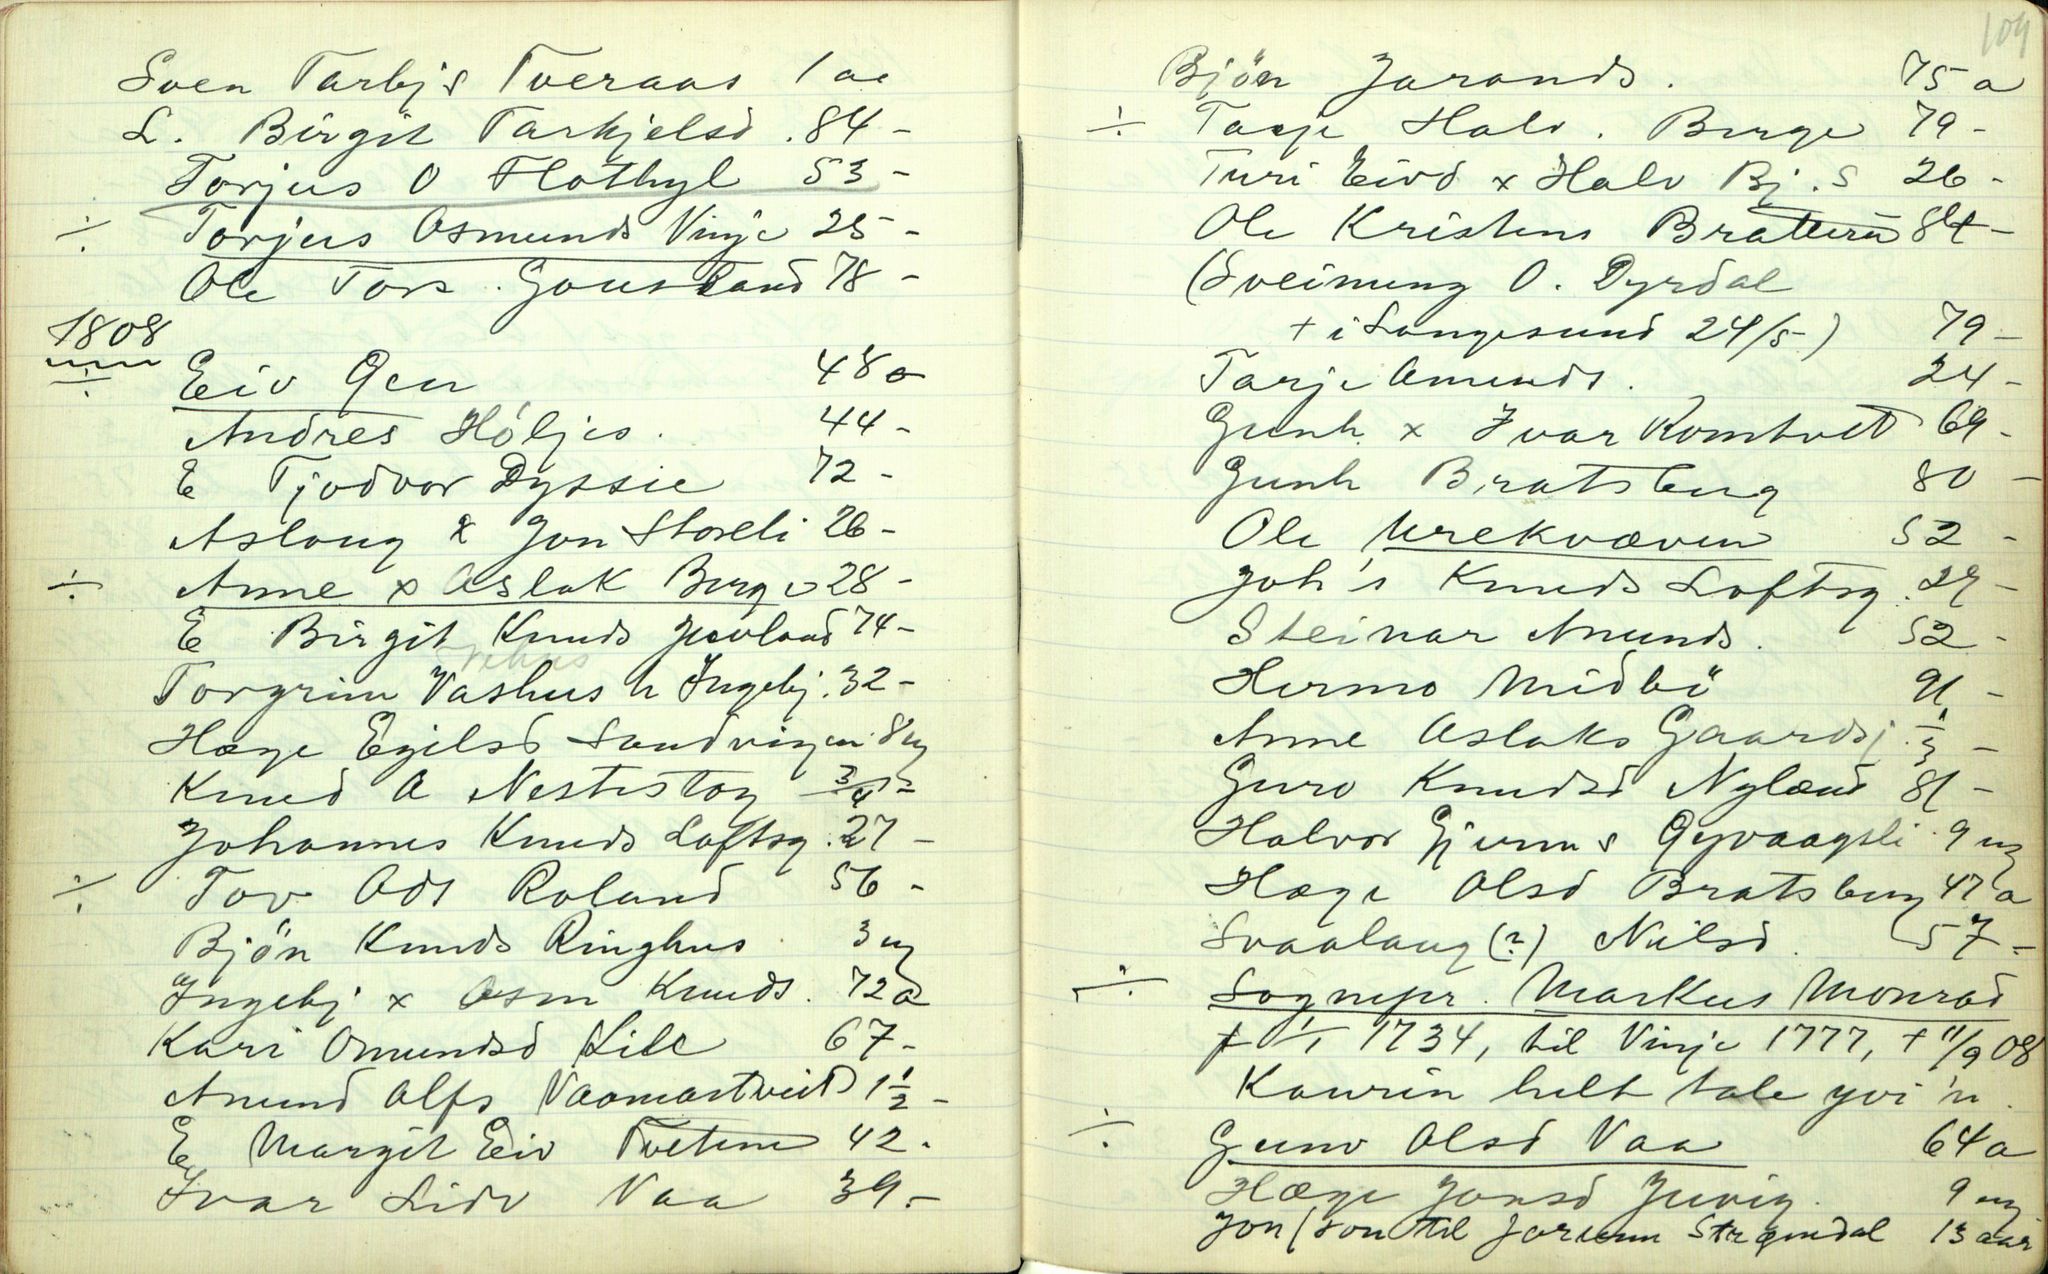 Sven Tarbjs Tveraas 1 aa
L. Birgit Tarkjelsd. 84 -
Torjus O Flothyl 53 -
÷ Torjus Osmunds Vinje 25 -
Ole Tors. Gousland 78 -
1808
÷ Eiv Øen 48 a
Andres Höljes. 44 -
E Tjodvor Dyssie 72 -
Aslaug x Jon Storeli 26 -
÷ Anne x Aslak Berge 28 -
E Birgit Knuds Juvland 74 -
Torgrim Vashus h Ingebj. 32 -
Hæge Egilsd Sandvigen 8 ug
Knud A Nestestog 3/4 -
Johannes Knuds Loftsg. 27 -
÷ Tov Ods Roland 56 -
Bjön Knuds Ringhus 3 ug
Ingebj x Osm Knuds. 72 a
Kari Omundsd Lile 67 -
Anund Olfs Vaamartveit 1 1/2 -
E Margit Eiv Tveten 42 -
Ivar Lidv Vaa 39 -
104
Bjön Jaronds. 75 a
÷ Tarje Halv. Berge 79 -
Turi Eivd x Halv Bj. S 26 -
Ole Kristens Bratterü 84 -
(Sveinung O. Dyrdal
+ i Langesund 24/5) 79 -
Tarje Omunds. 24 -
Gunh. x Ivar Romtvet 69 -
Gunh Bratsberg 80 -
Ole Urekvæven 52 -
Joh's Knuds Loftsg. 29 -
Steinar Anunds. 52 -
Hermo Midbö 91 -
Anne Aslaks Gaardsj. 1/3 -
Guro Knudsd Nylænd 81 -
Halvor Gjermus Øyvaagsli 9 ug
Hæge Olsd Bratsberg 47 a
Svaalaug (?) Nilsd. 57 -
÷ Sognepr. Markus Monrad
f 1/1 1734, til Vinje 1777, + 11/9 08
Kaurin helt tale yvi 'n.
÷ Gunv Olsd Vaa 64 a
Hæge Jonsd Juvig. 9 ug
Jon (son til Jorunn Strøndal 13 aar